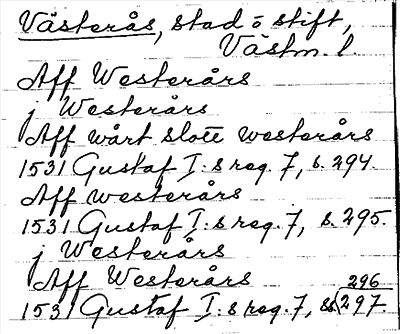 Västerås, stad o stift,
Västm. l.
Aff Westerårs
j Westerårs
Aff wårt slott westerårs
1531 Gustaf I:s reg. 7, s. 294.
Aff westerårs
1531 Gustaf I:s reg. 7, s. 295.
j Westerårs
Aff Westerårs
296
1531 Gustaf I:s reg. 7, ss. 297.